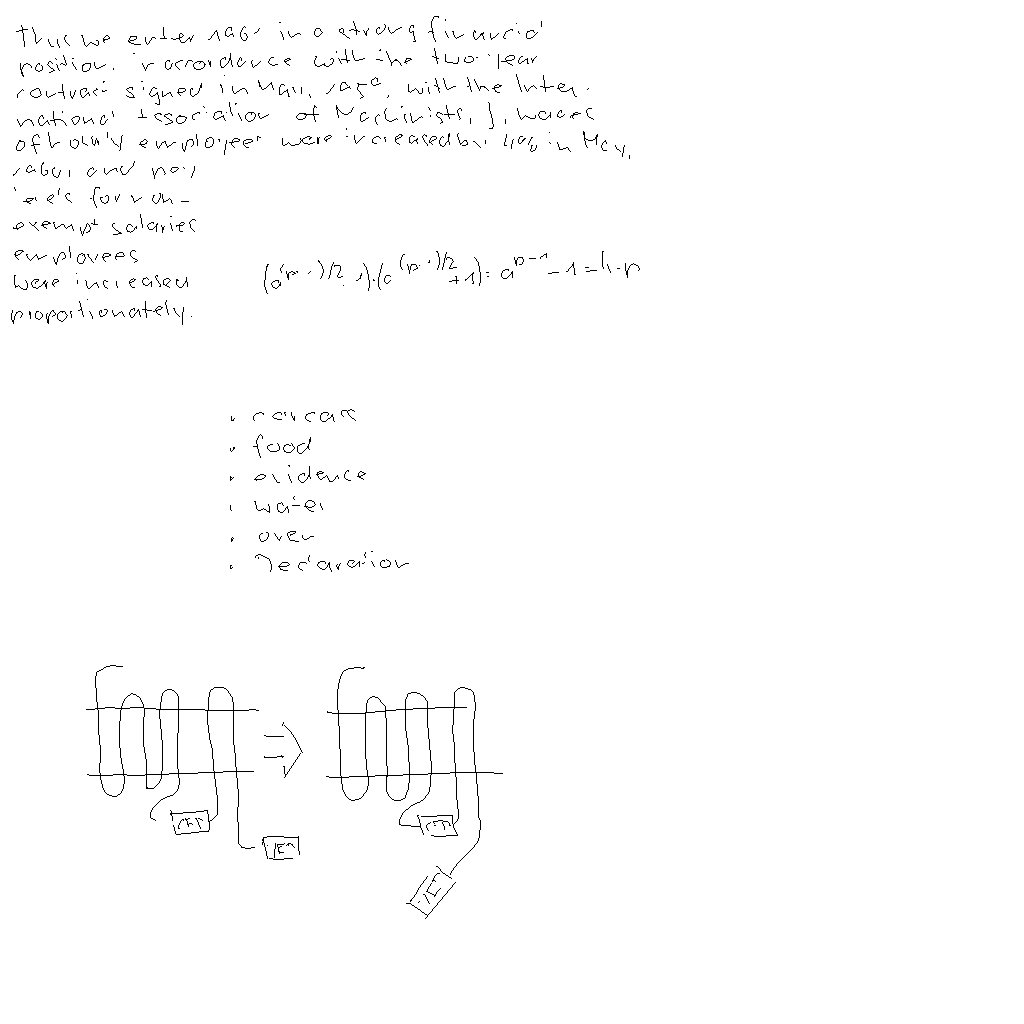 Thus we enter 1960 in a strong financial
position. In accordance with the two-year
contract signed in May, 1959, with the Inter-
national Association of Machinists, wages
of hourly employees were increased by 4% in May,
1960, and pay
for non-
exempt salaries
employees
were increased
proportionately.
(a^(p-1)/2 - 1)·(a^(p-1)/2 + 1) = a^p-1 - 1 = h·p
• carcass
• food
• evidence
• water
• over
• Declaration